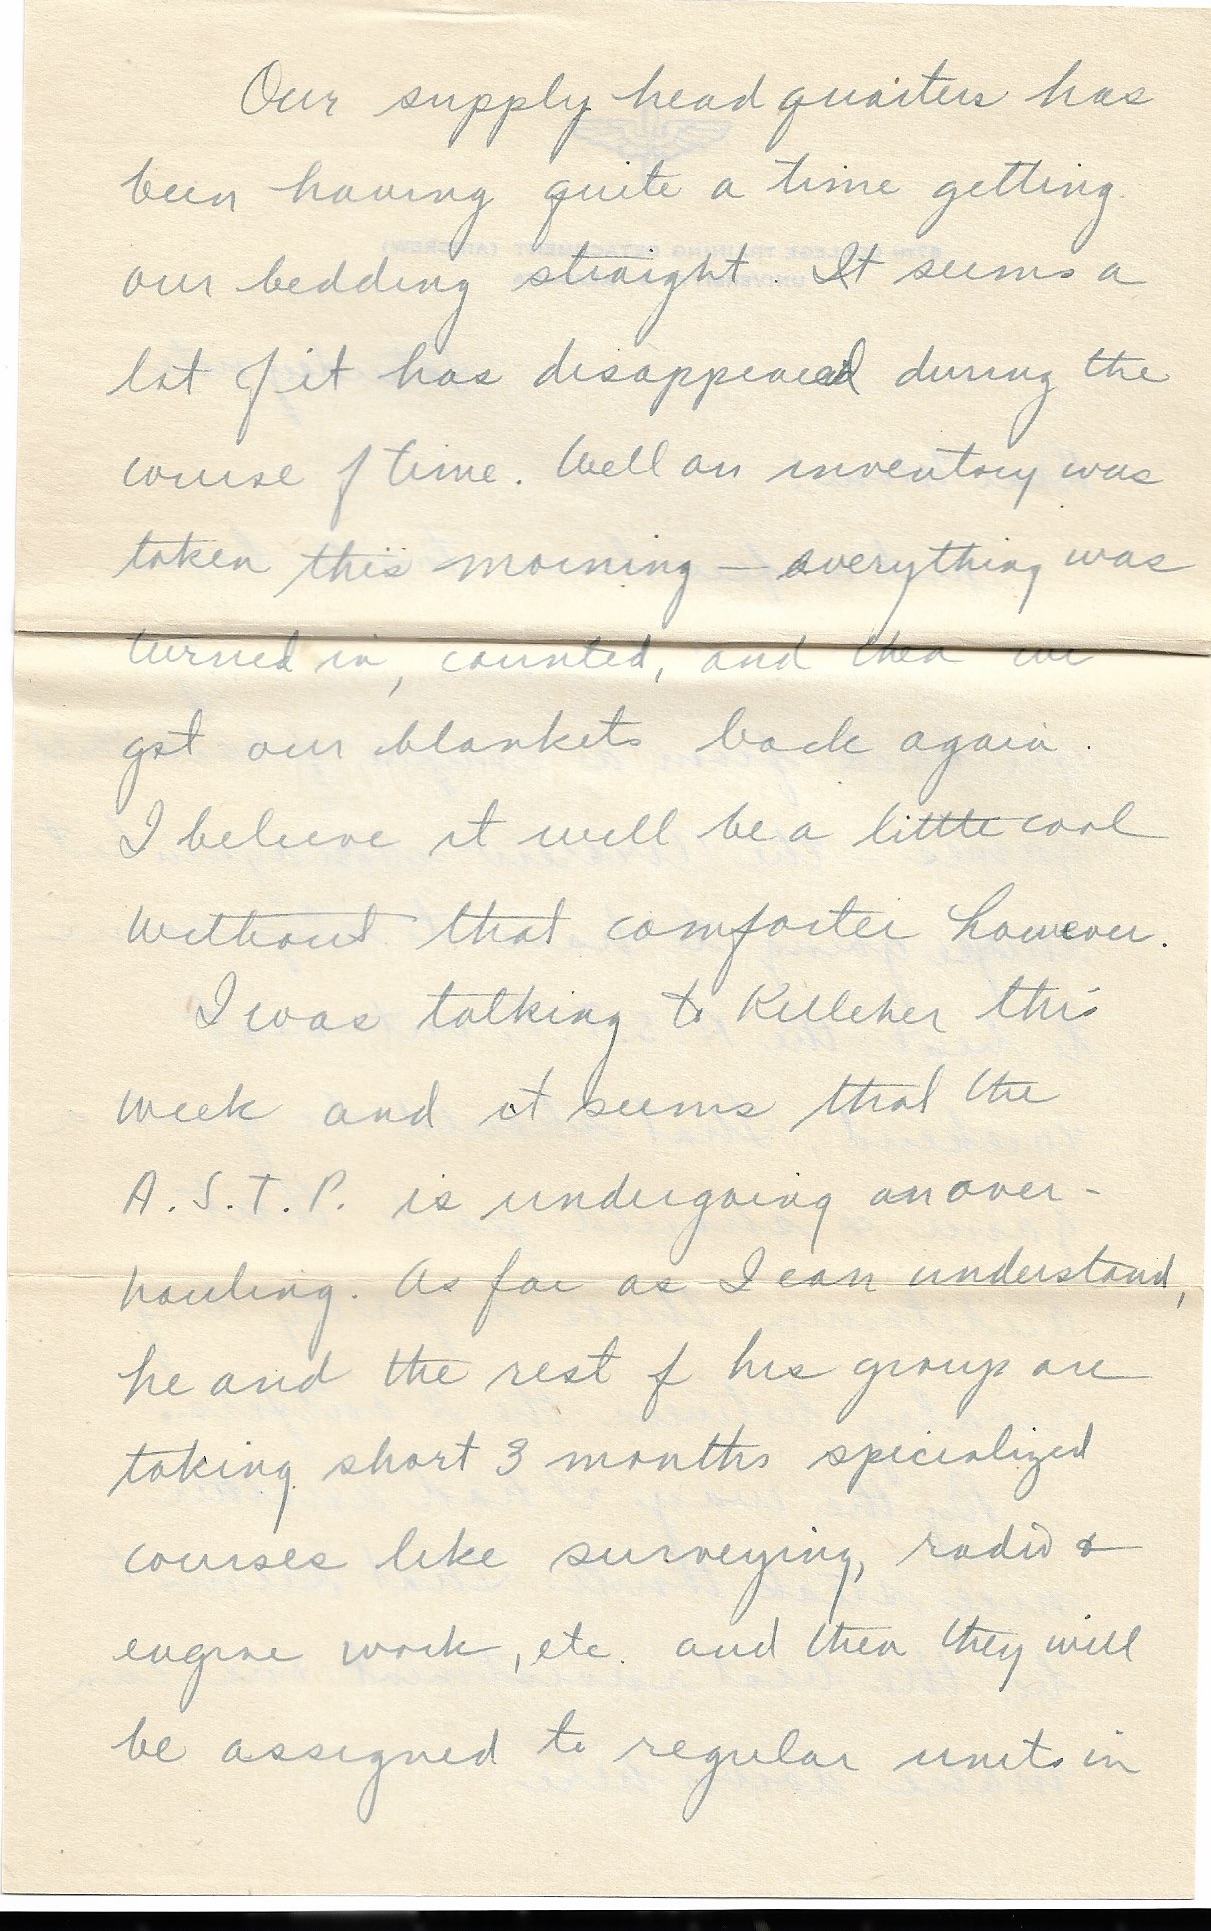 Our supply headquarters has
been having quite a time getting
our bedding straight. It seems a
lot of it has disappeared during the
course of time. Well an inventory was
taken this morning — everything was
turned in, counted, and then we
got our blankets back again.
I believe it will be a little cool
without that comforter however.
I was talking to Killeher this
week and it seems that the
A.S.T.P. is undergoing an over-
hauling. As far as I can understand,
he and the rest of his group are
taking short 3 months specialized
courses like surveying, radio &
engine work, etc. and then they will
be assigned to regular units in